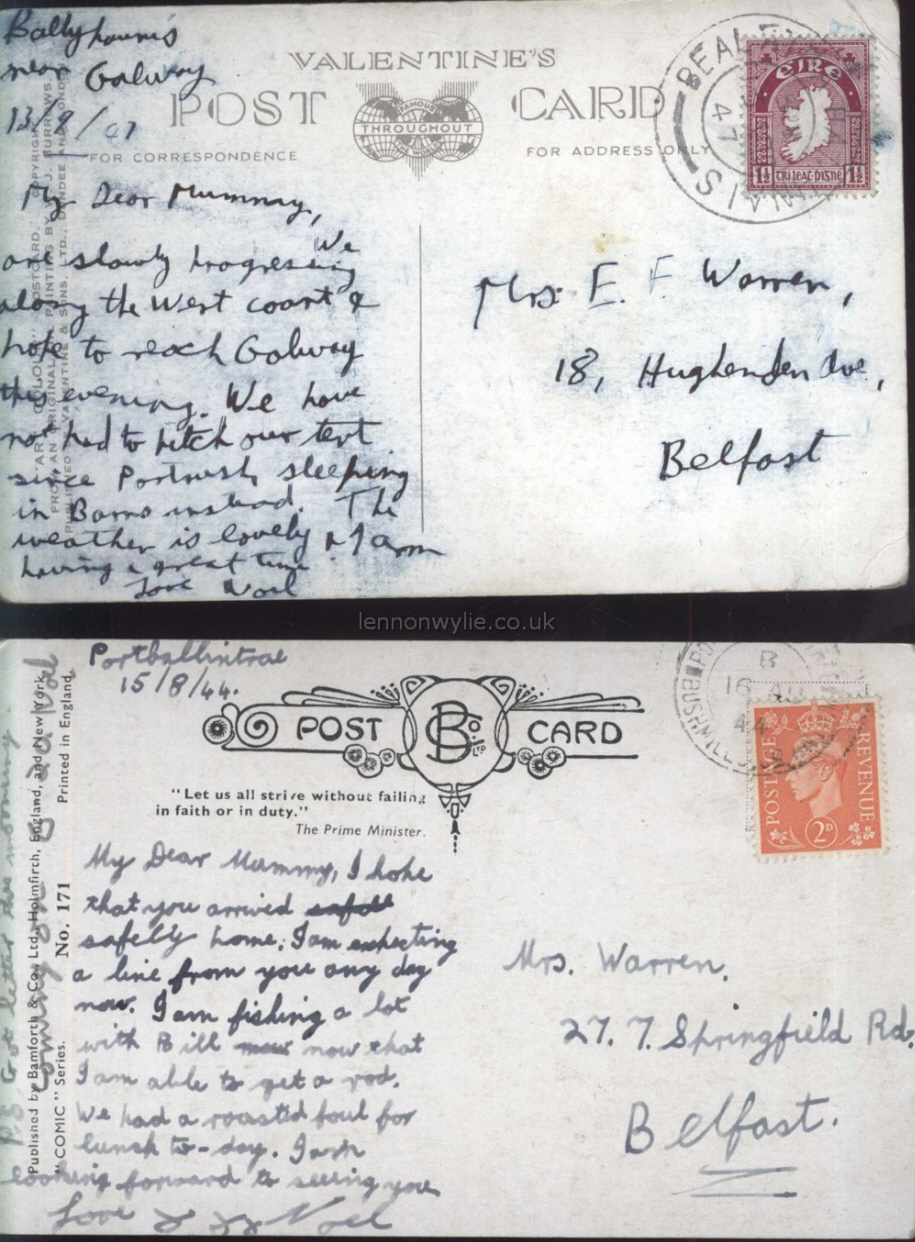 Ballyhaunis
near Galway
13/8/47
VALENTINE'S
POST CARD
FAMOUS
THROUGHOUT
THE WORLD
FOR CORRESPONDENCE
FOR ADDRESS ONLY
BEAL
47
ÉIRE
1½ TRI LEAT-PINGNE 1½
My Dear Mummy,
We
are slowly progressing
along the West coast &
hope to reach Galway
this evening. We have
not had to pitch our tent
since Portrush, sleeping
in Barns instead. The
weather is lovely & I am
having a great time
Love Noel
Mrs. E. F. Warren,
18, Hughenden Ave,
Belfast
"ART COLOUR" POSTCARD. COPYRIGHT
FROM AN ORIGINAL PAINTING BY J. BURROWS
PUBLISHED VALENTINE & SONS. LTD., DUNDEE AND LONDON
lennonwylie.co.uk
Portballintrae
15/8/44.
POST CARD
B Co LTD
"Let us all strive without failing
in faith or in duty."
The Prime Minister.
B
16 AU
44
BUSHMILLS
POSTAGE REVENUE
2D
My Dear Mummy, I hope
that you arrived
safelly home. I am expecting
a line from you any day
now. I am fishing a lot
with Bill now now that
I am able to get a rod.
We had a roasted foul for
lunch to-day. I am
looking forward to seeing you
Love Noel
Mrs. Warren.
277 Springfield Rd.
Belfast.
Published by Bamforth & Co., Ltd., Holmfirth, England, and New York.
"COMIC" Series. No. 171 Printed in England.
P.S Got letter this morning.